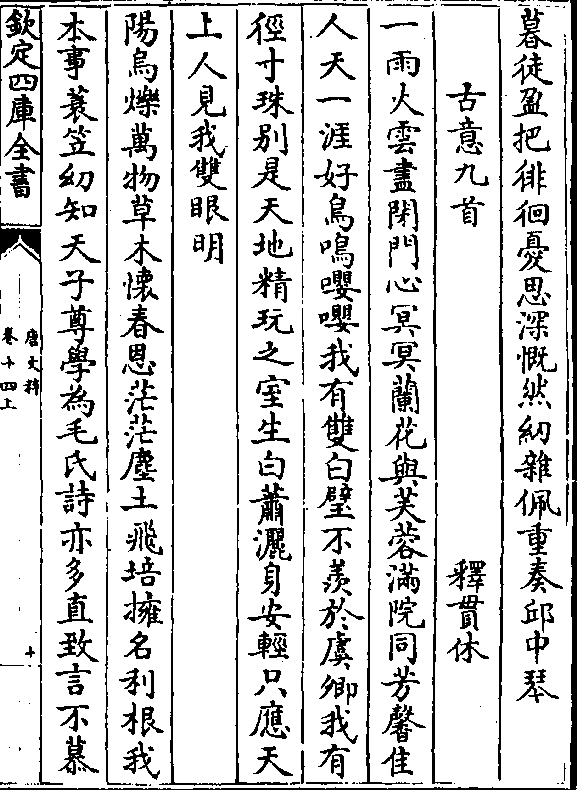 暮徒盈把徘徊憂思深慨然紉雜佩重奏邱中琴
古意九首　　　　　　　　釋貫休
一雨火雲盡閉門心冥冥蘭花與芙蓉滿院同芳馨佳
人天一涯好鳥鳴嚶嚶我有雙白璧不羨於虞卿我有
徑寸珠别是天地精玩之室生白蕭灑身安輕只應天
上人見我雙眼明
陽烏爍萬物草木懷春恩茫茫塵土飛培擁名利根我
本事蓑笠幼知天子尊學為毛氏詩亦多直致言不慕
欽定四庫全書
唐文粹
卷十四上
十